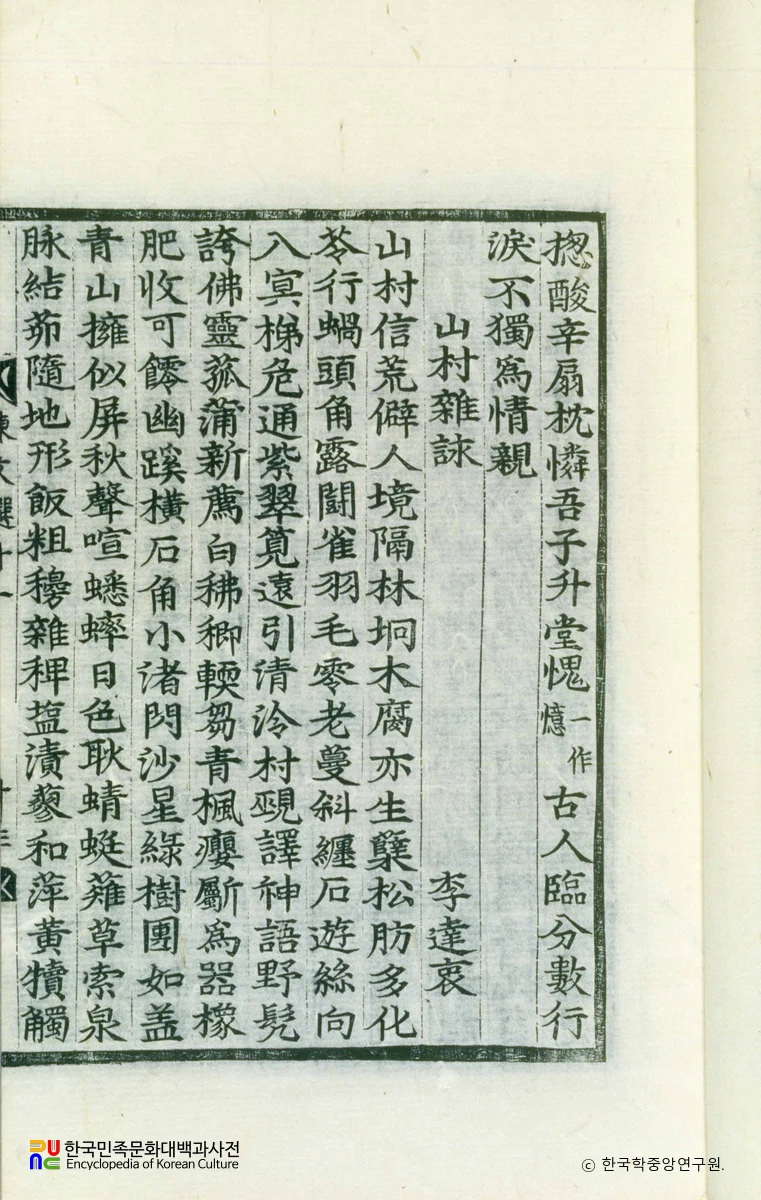 揔酸辛扇枕憐吾子升堂愧一作憶古人臨分數行
淚不獨爲情親
山村雜詠 李達衷
山村信荒僻人境隔林坰木腐亦生蘖松肪多化
苓行蝸頭角露鬪雀羽毛零老蔓斜纏石遊絲向
入冥梯危通紫翠筧遠引清泠村覡譯神語野髡
誇佛靈菰蒲新薦白稊稗輭芻青楓癭斸爲器橡
肥收可𩜁幽蹊橫石角小渚閃沙星綠樹團如盖
青山擁似屏秋聲喧蟋蟀日色耿蜻蜓薙草索泉
脉結茆隨地形飯粗穇雜稗塩漬蓼和萍黃犢觸
東文選十一
한국민족문화대백과사전
Encyclopedia of Korean Culture
© 한국학중앙연구원.